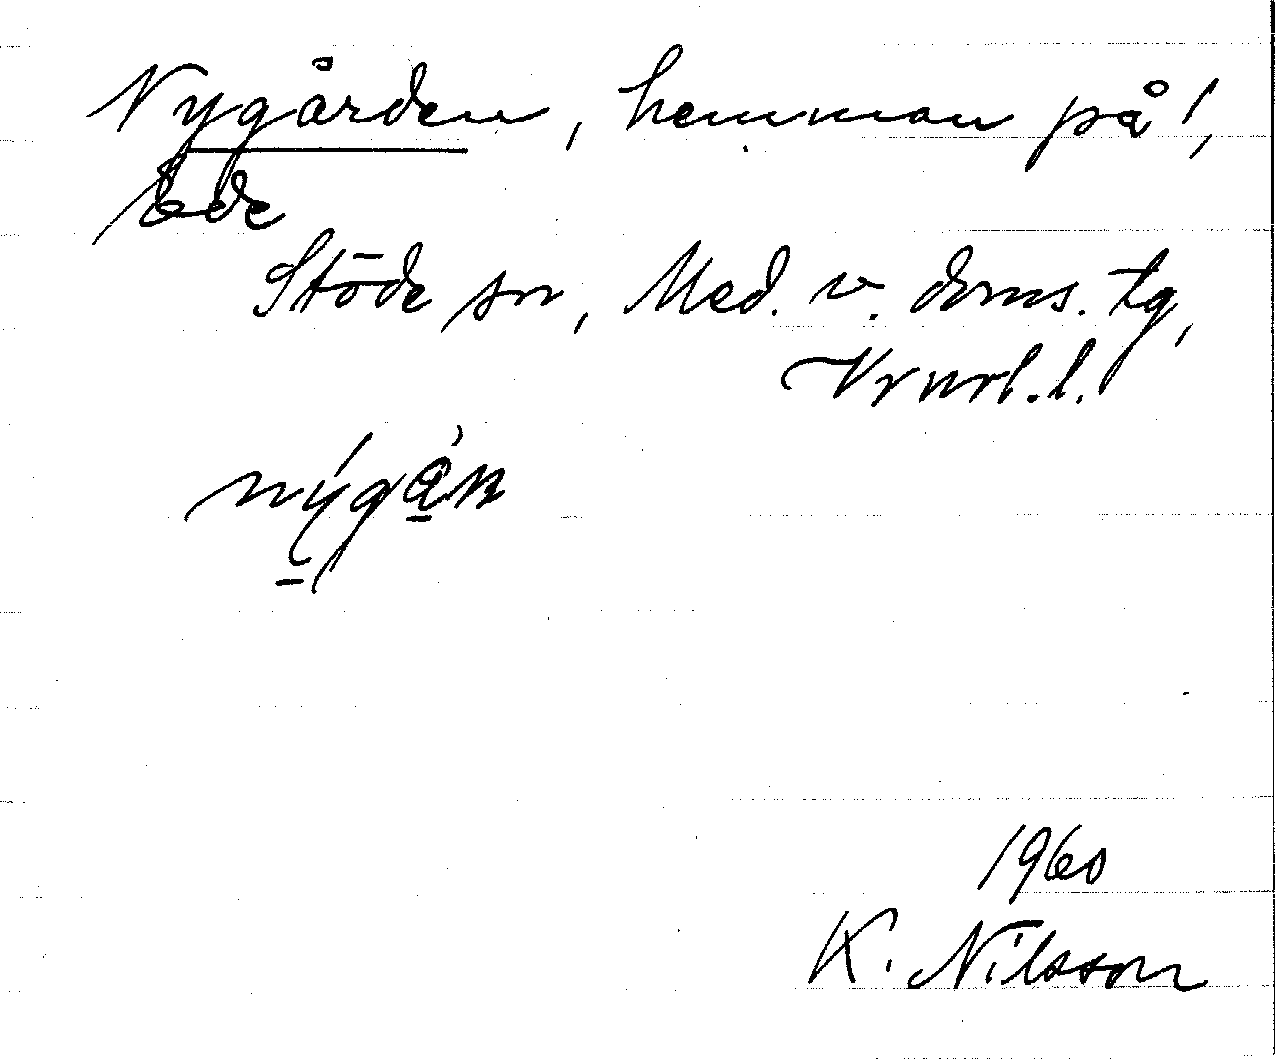 Nygården, hemman på 1,
Ede
Stöde sn, Med. v. doms. tg,
Vrnrl. l.
nýgán
1960
K. Nilsson